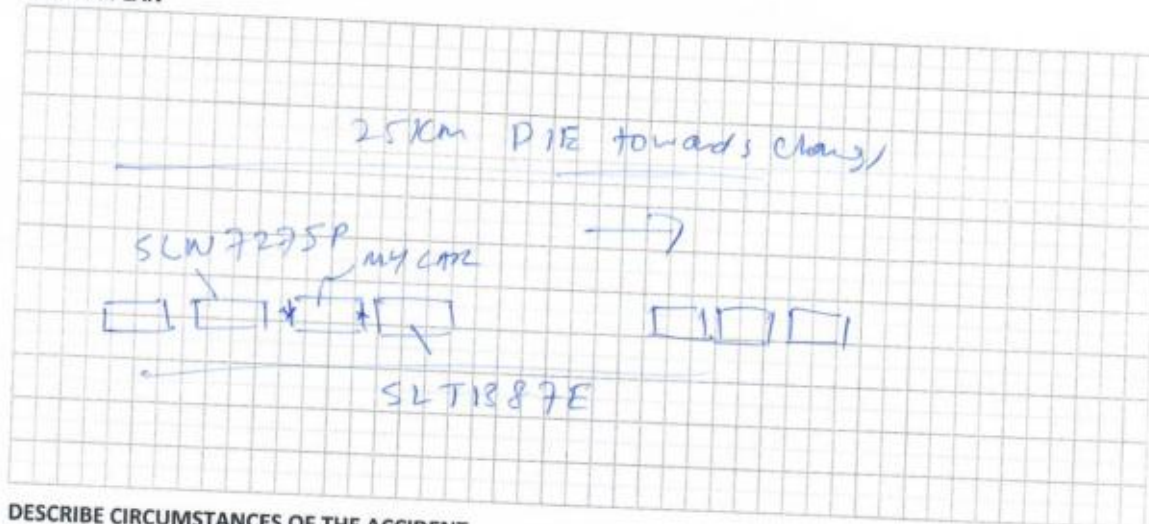 25km PIE towards Changi
SLW7275P
MY CAR
SLT1387E
DESCRIBE CIRCUMSTANCES OF THE ACCIDENT